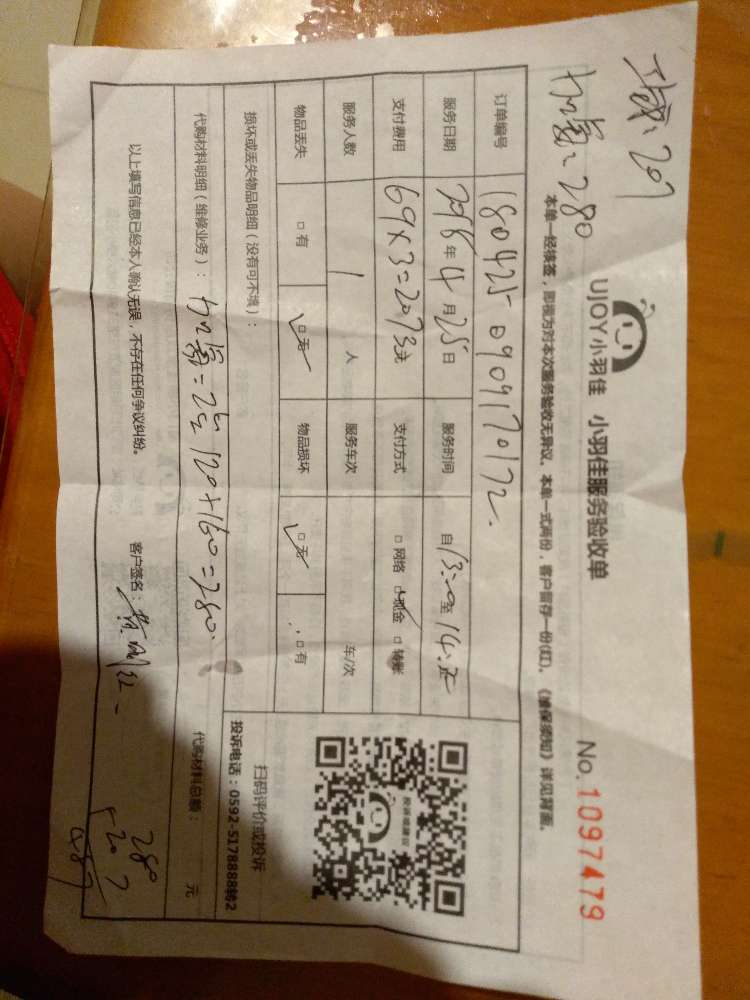 减:207
加氟:280
UJOY小羽佳 小羽佳服务验收单
No.1097479
本单一经接签,即视为对本次服务验收无异议。本单一式两份,客户留存一份(红)。《维保须知》详见背面。
订单编号 1804250909170172
服务日期 2018年4月25日 服务时间 自13:00至14:
支付费用 69×3=207元 支付方式 □网络 □现金 □转账
服务人数 1人 服务车次 车/次
物品丢失 □有 □无 物品损坏 □无 □有
损坏或丢失物品明细(没有可不填):
扫码评价或投诉
投诉电话:0592-5178888转2
投诉或建议
代购材料明细(维修业务):加氟=2台 120+160=280
代购材料总额: 元
以上填写信息已经本人确认无误,不存在任何争议纠纷。 客户签名:黄
280
+207
487